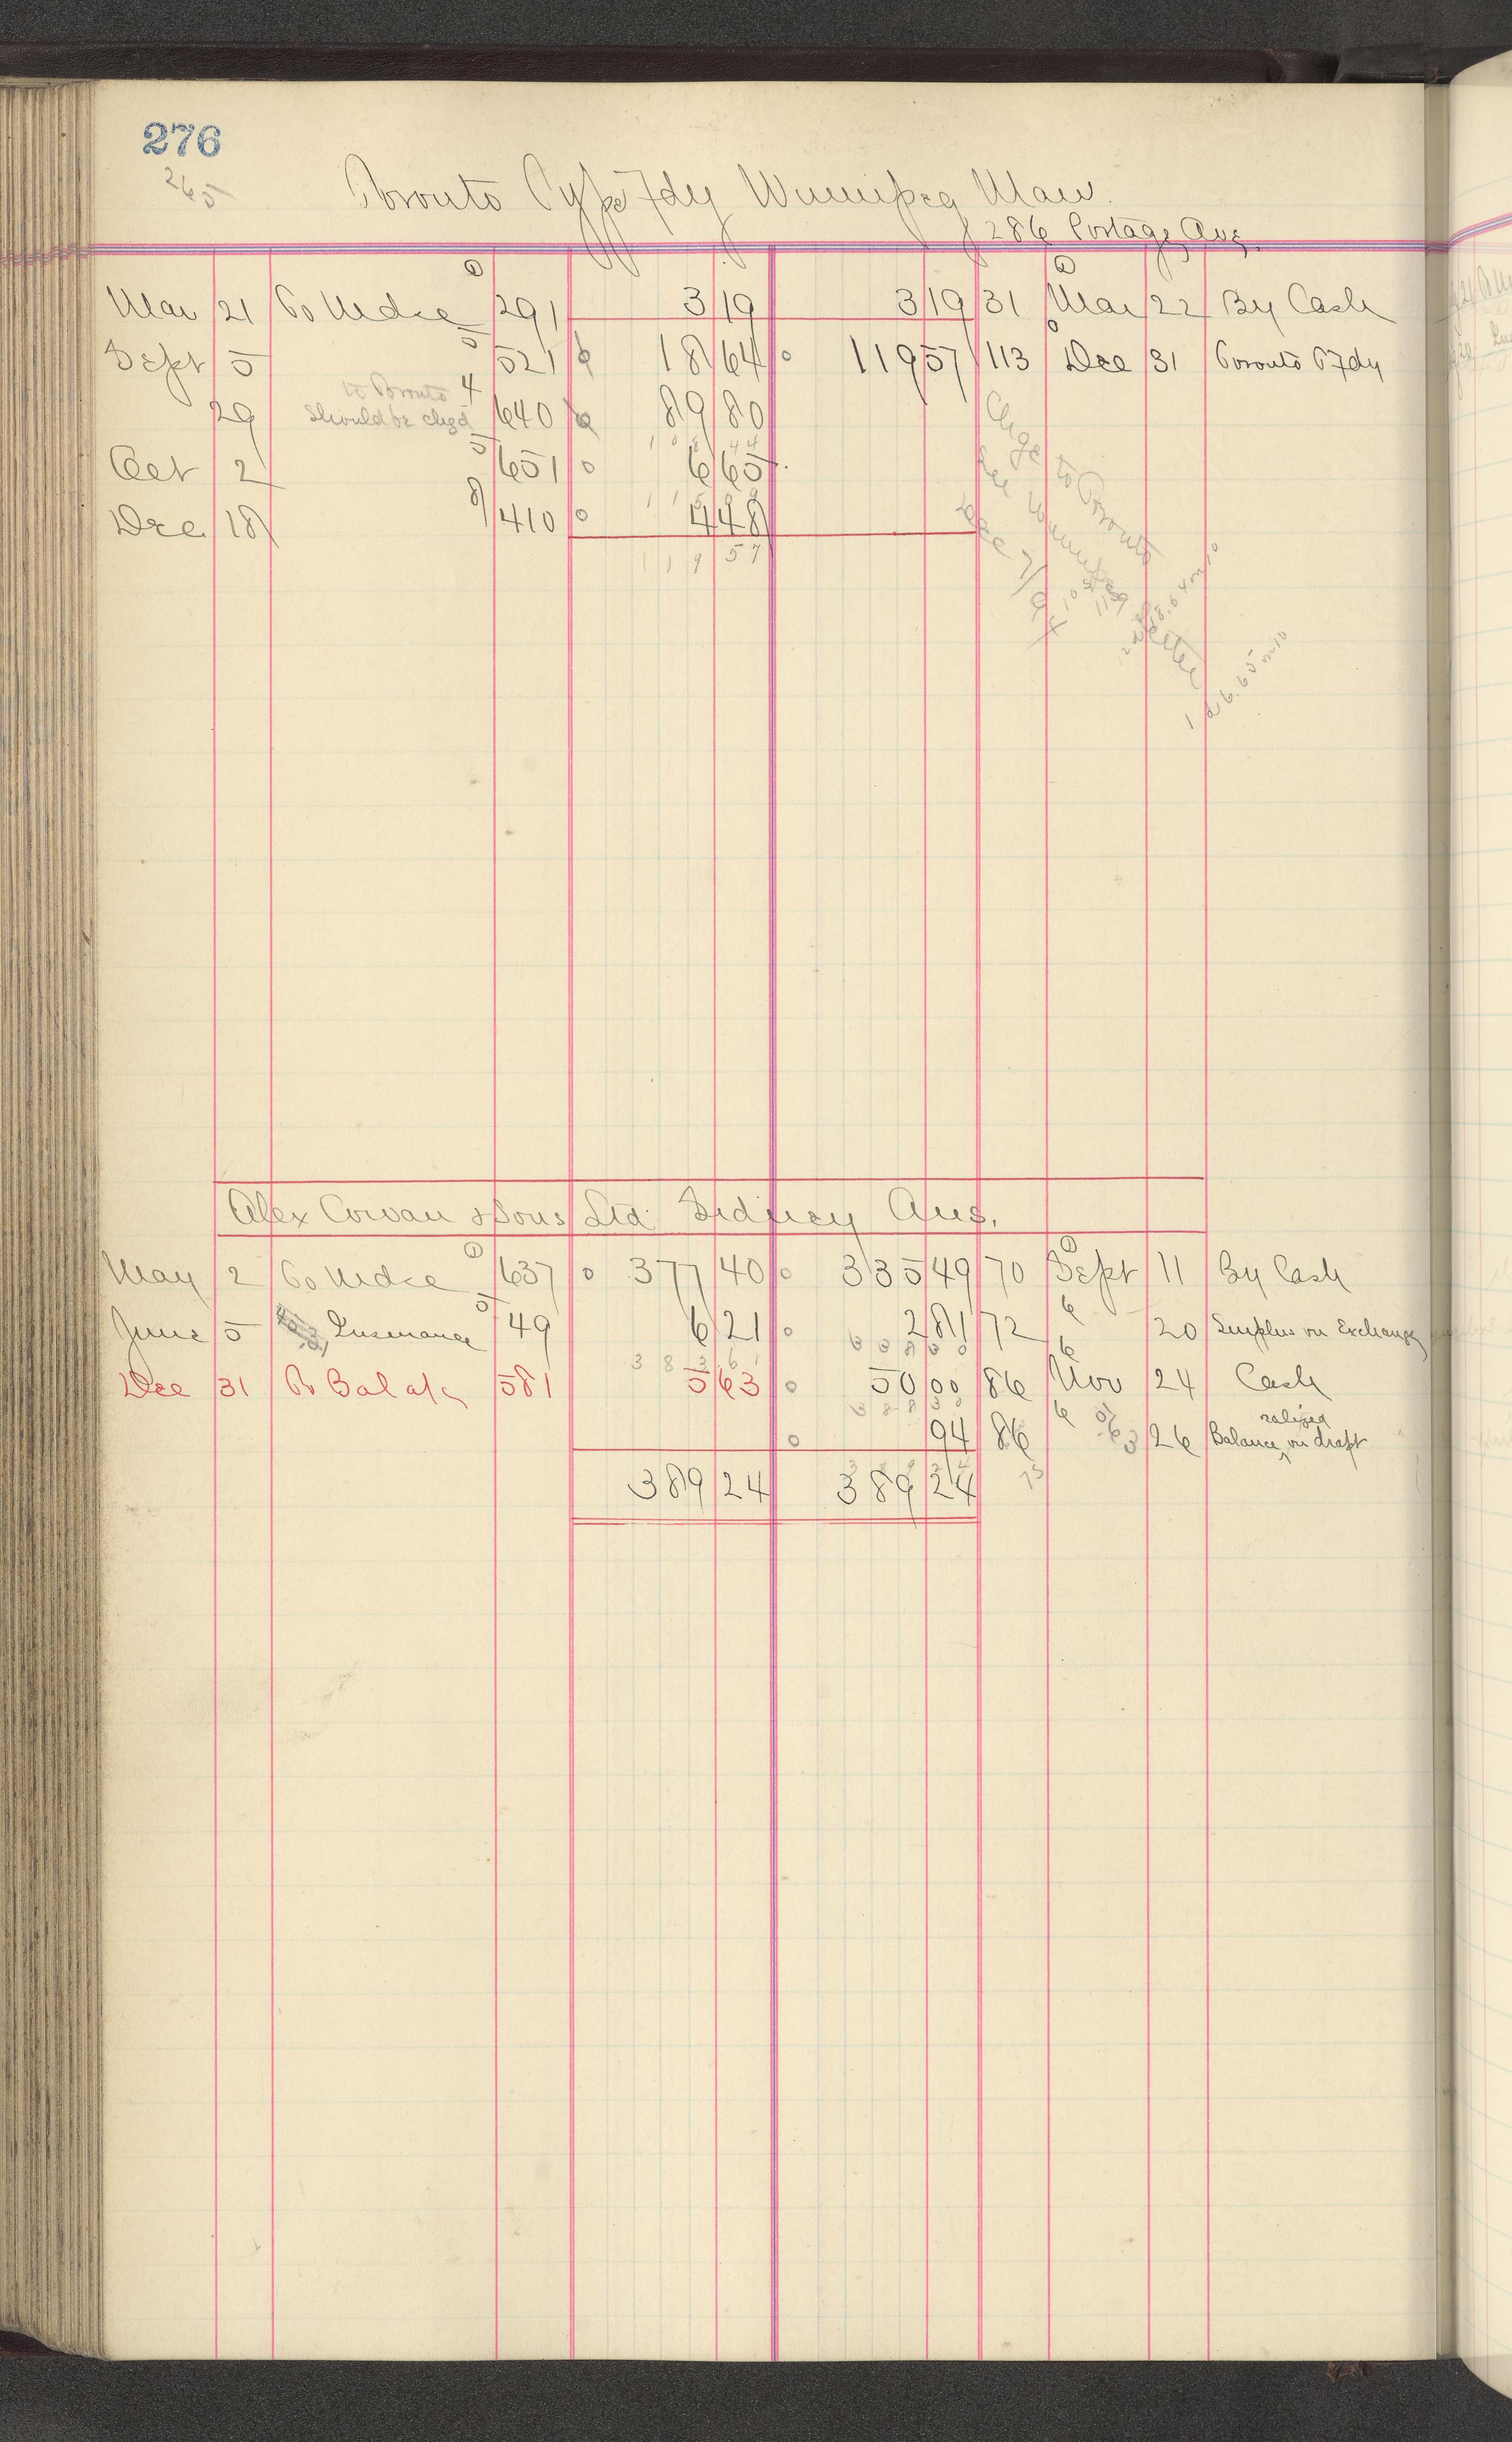 276
265
Toronto Type Fdy Winnipeg Man.
286 Portage Ave
Mar 21 To Mdse 291 3/19 3/19 31 Mar 22 By Cash
Sept 5 521 18/64 119/57 113 Dec 31 Toronto T Fdy
to Toronto 4
29 Should be chgd 640 89/80
Oct 2 651 6/65
Dec 18 410 4/48
119 57
Alex Cowan & Sons Ltd. Sydney Aus.
May 2 To Mdse 637 377/40 335/49 70 Sept 11 By Cash
June 5 Insurance 49 6/21 2/81 72 20 Surplus on Exchange
383 61
Dec 31 To Bal a/c 581 5/63 50/00 86 Nov 24 Cash
94 86 26 Balance realized on draft
389/24 389/24